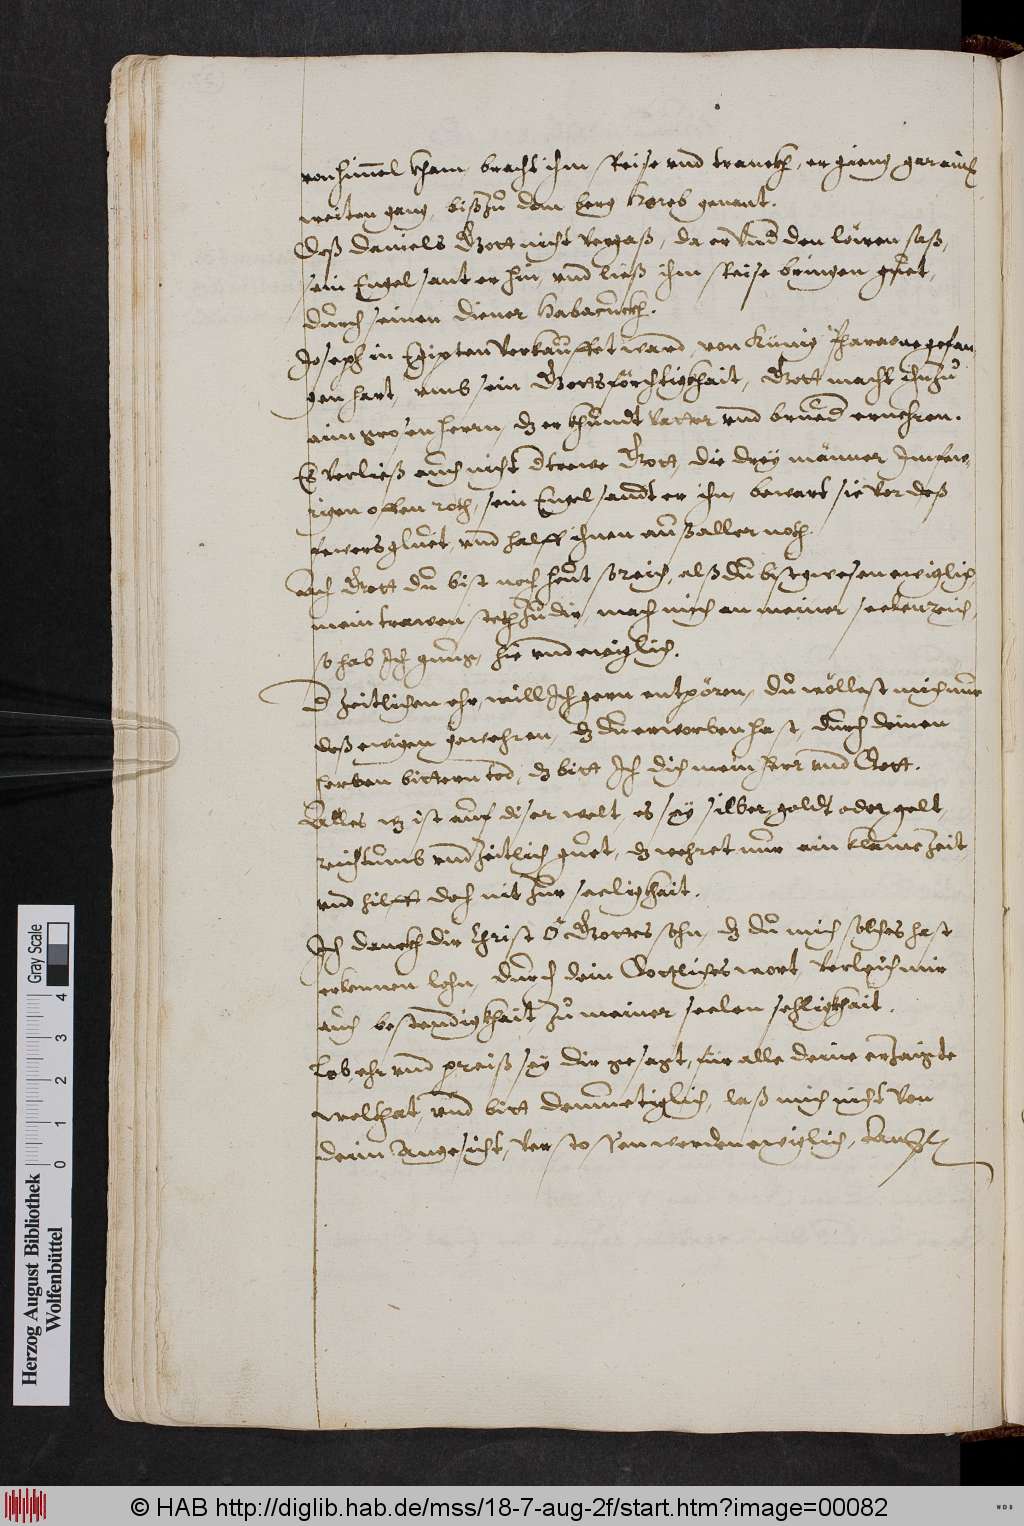 von himel kham, bracht ihm Speise vnd tranckh, er gieng gar ain
weiten gang, biß zu dem berg Horeb genant.
Deß Daniels Gott nicht vergaß, da er vnd den löwen saß,
sein Engel sant er hin, vnd ließ ihm Speise bringen guet,
durch seinen diener Habacuckh.
Joseph in Egipten verkauffet ward, von Künig Pharaone gefan
gen hart, vmb sein Gottsförchtigkhait, Gott macht ihn zu
aim grosen herrn, dz er khundt vatter vnd brued ernehren.
Es verließ auch nicht d trewe Gott, die drey männer im few
rigen offen roth, sein Engel sandt er ihn, bewart sie vor deß
fewers gluet, vnd halff ihnen auß aller noth.
Ach Gott du bist noch heut so reich, alß du bist gwesen ewiglich,
mein trawen steth zu dir, mach mich an meiner seelen reich,
so hab Ich gnung, hie vnd ewiglich.
D zeitlichen ehr, will Ich gern entpören, du wöllest mich nur
deß ewigen gewehren, dz du erworben hast, durch deinen
herben bittern tod, dz bitt Ich dich mein herr vnd Gott.
Alles wz ist auf diser welt, es sey silber, goldt oder gelt,
reichtumb vnd zeitlich guet, dz wehret nur ein kleine zeit,
vnd hilfft doch nit zur seeligkhait.
Ich danckh dir Christ O Gottes sohn, dz du mich solches hast
erkennen lehn, durch dein Göttliches wort, verleich mir
auch bestendigkhait zu meiner seelen sehligkhait.
Lob, ehr vnd preiß sey dir gesagt, für alle deine erzaigte
wolthat, vnd bitt demuetiglich, laß mich nicht von
deim Angesicht, verstossen werden ewiglich,
Herzog August Bibliothek
Wolfenbüttel
0 1 2 3 4
Gray Scale
© HAB http://diglib.hab.de/mss/18-7-aug-2f/start.htm?image=00082